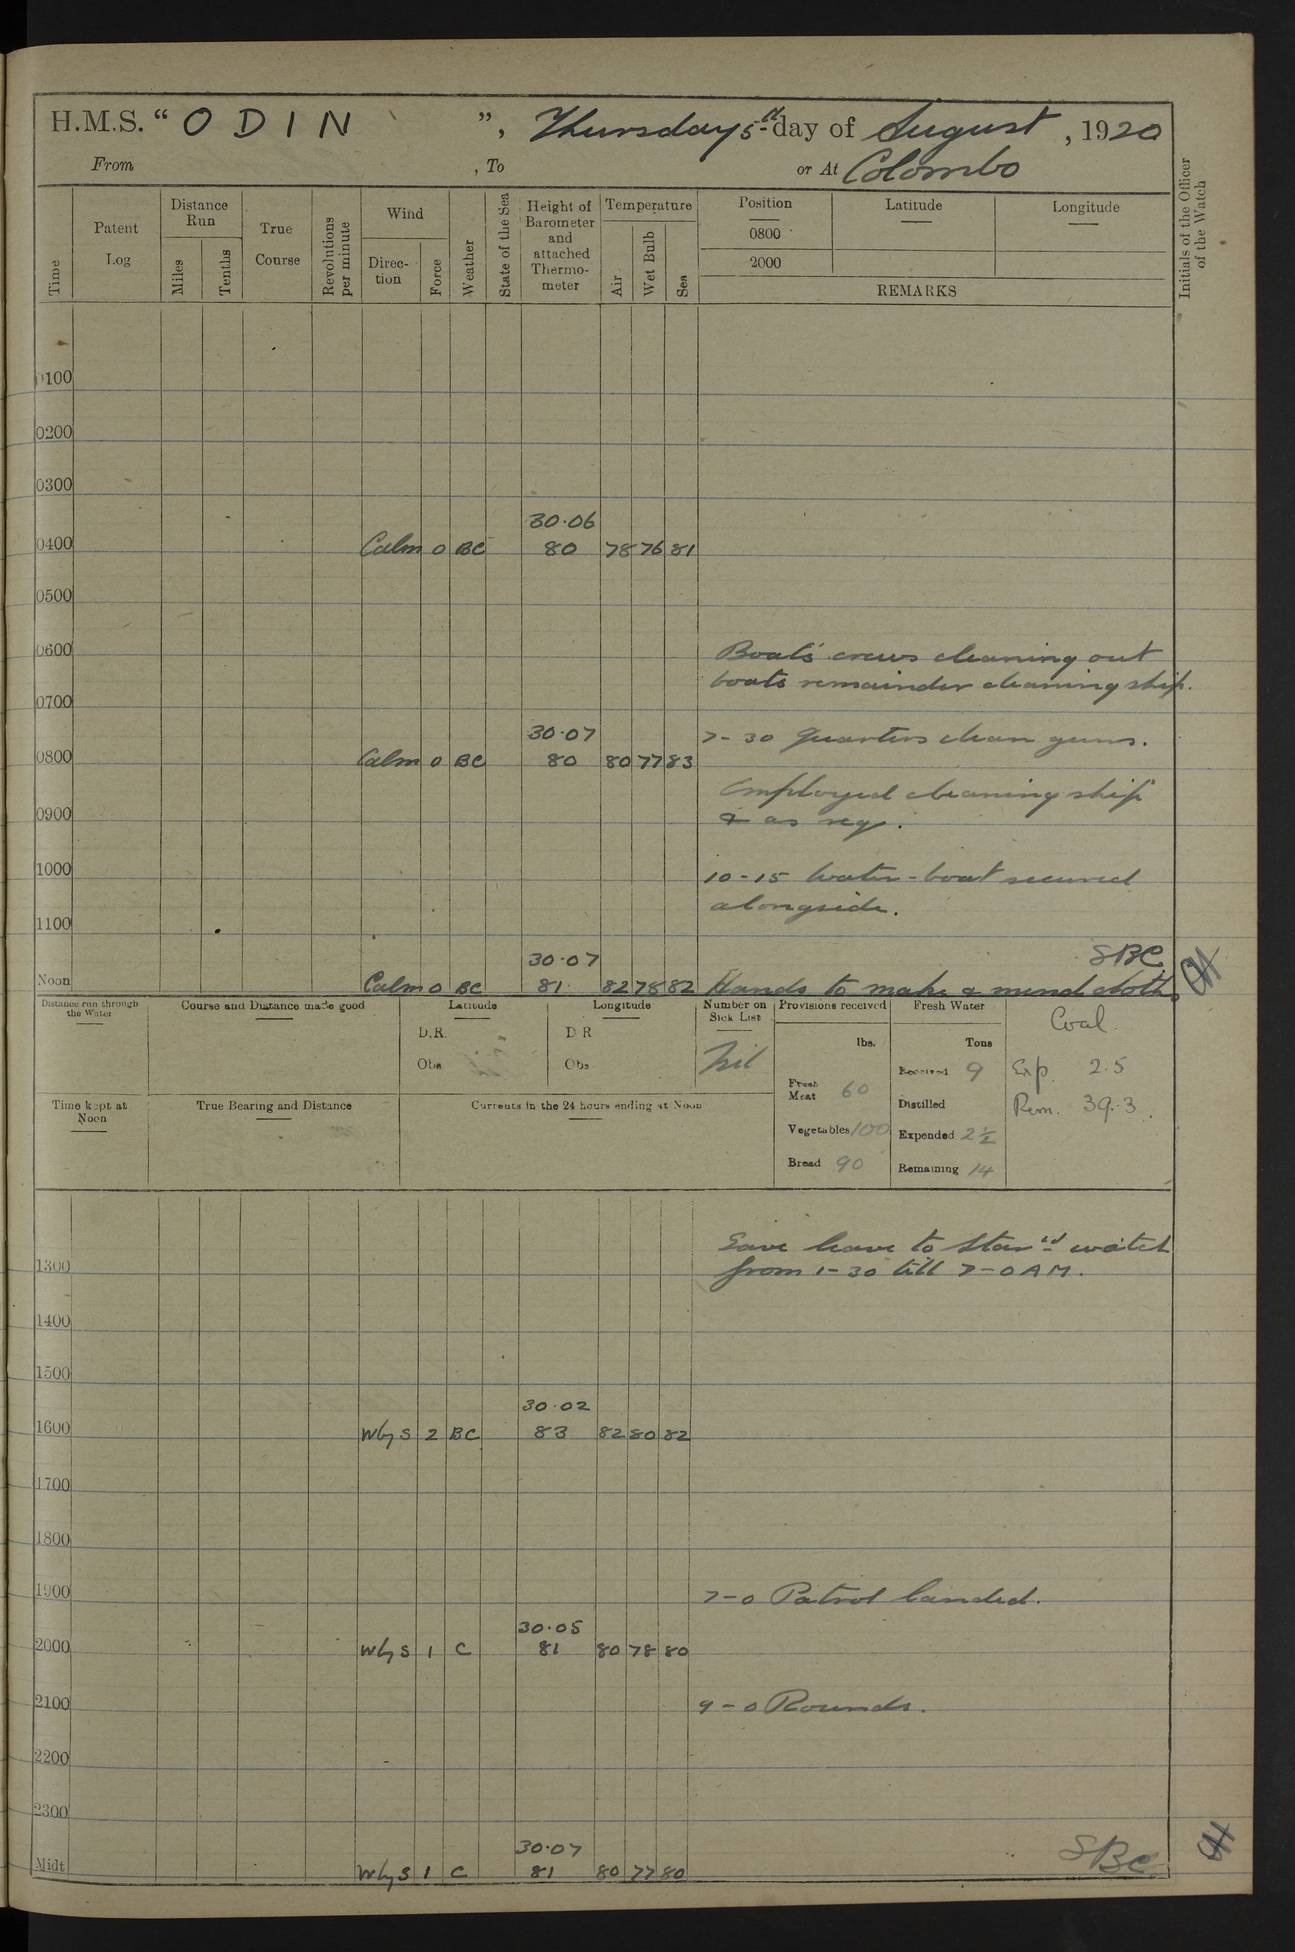 H.M.S. “ ODIN ”, Thursday 5th day of August, 1920
From , To or At Colombo
Time
Patent Log
Distance Run
Miles
Tenths
True Course
Revolutions per minute
Wind
Direction
Force
Weather
State of the Sea
Height of Barometer and attached Thermometer
Temperature
Air
Wet Bulb
Sea
Position
0800
2000
Latitude
Longitude
REMARKS
Initials of the Officer of the Watch
0100
0200
0300
30.06
0400 Calm 0 BC 80 78 76 81
0500
0600 Boats' crews cleaning out
boats remainder cleaning ship.
0700
30.07 7-30 Quarters clean guns.
0800 Calm 0 BC 80 80 77 83
Employed cleaning ship
0900 & as req.
1000 10-15 Water-boat secured
alongside.
1100
30.07 SBC
Noon Calm 0 BC 81 82 78 82 Hands to make & mend cloths
Distance run through the Water
Course and Distance made good
Latitude
D.R.
Obs
Longitude
D R
Obs
Number on Sick List
Nil
Provisions received
lbs.
Fresh Meat 60
Vegetables 100
Bread 90
Fresh Water
Tons
Received 9
Distilled
Expended 2½
Remaining 14
Coal
Exp. 2.5
Rem. 39.3.
Time kept at Noon
True Bearing and Distance
Currents in the 24 hours ending at Noon
Gave leave to Starbd watch
1300 from 1-30 till 7-0 AM.
1400
1500
30.02
1600 WbyS 2 BC 83 82 80 82
1700
1800
1900 7-0 Patrol landed.
30.05
2000 WbyS 1 C 81 80 78 80
2100 9-0 Rounds.
2200
2300
30.07
Midt WbyS 1 C 81 80 77 80 SBC